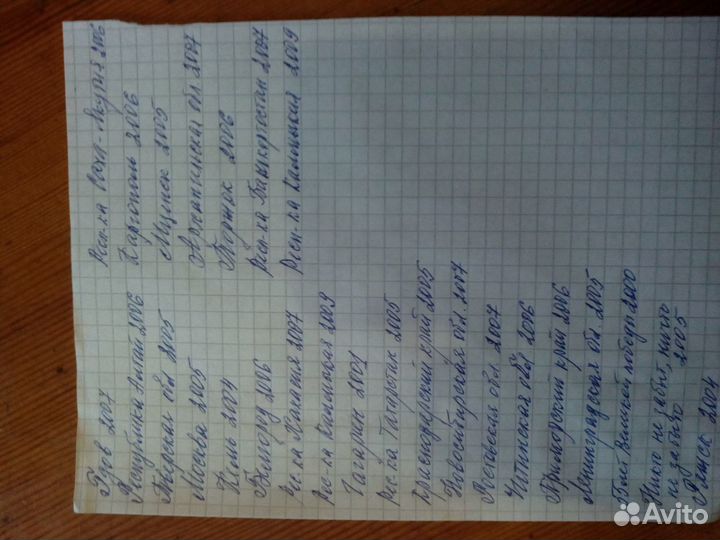 Гдов 2007
Республика Алтай 2006
Тверская обл 2005
Москва 2005
Кемь 2004
Белгород 2006
Рес-ка Хакасия 2007
Рес-ка Калмыкия 2009
Гагарин 2001
Рес-ка Татарстан 2005
Краснодарский край 2005
Новосибирская обл. 2007
Ростовская обл. 2007
Читинская обл 2006
Приморский край 2006
Ленинградская обл 2005
55 лет Великой победы 2000
Никто не забыт, ничто
не забыто 2005
Ряжск 2004
Рес-ка Саха-Якутия 2006
Каргополь 2006
Мценск 2005
Архангельская обл. 2007
Торжок 2006
Респ-ка Башкортостан 2007
Респ-ка Калмыкия 2009
Avito